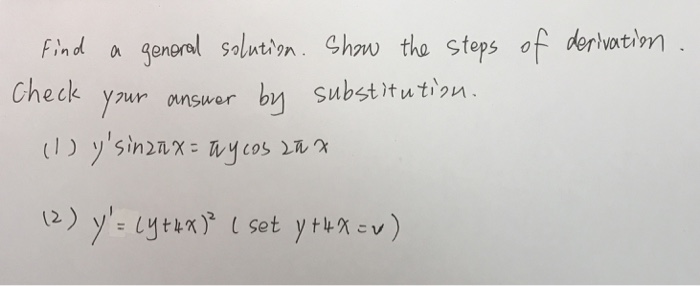 Find a general solution. Show the steps of derivation.
Check your answer by substitution.
(1) y'sin2πx = πycos 2πx
(2) y' = (y+4x)² (set y+4x=v)